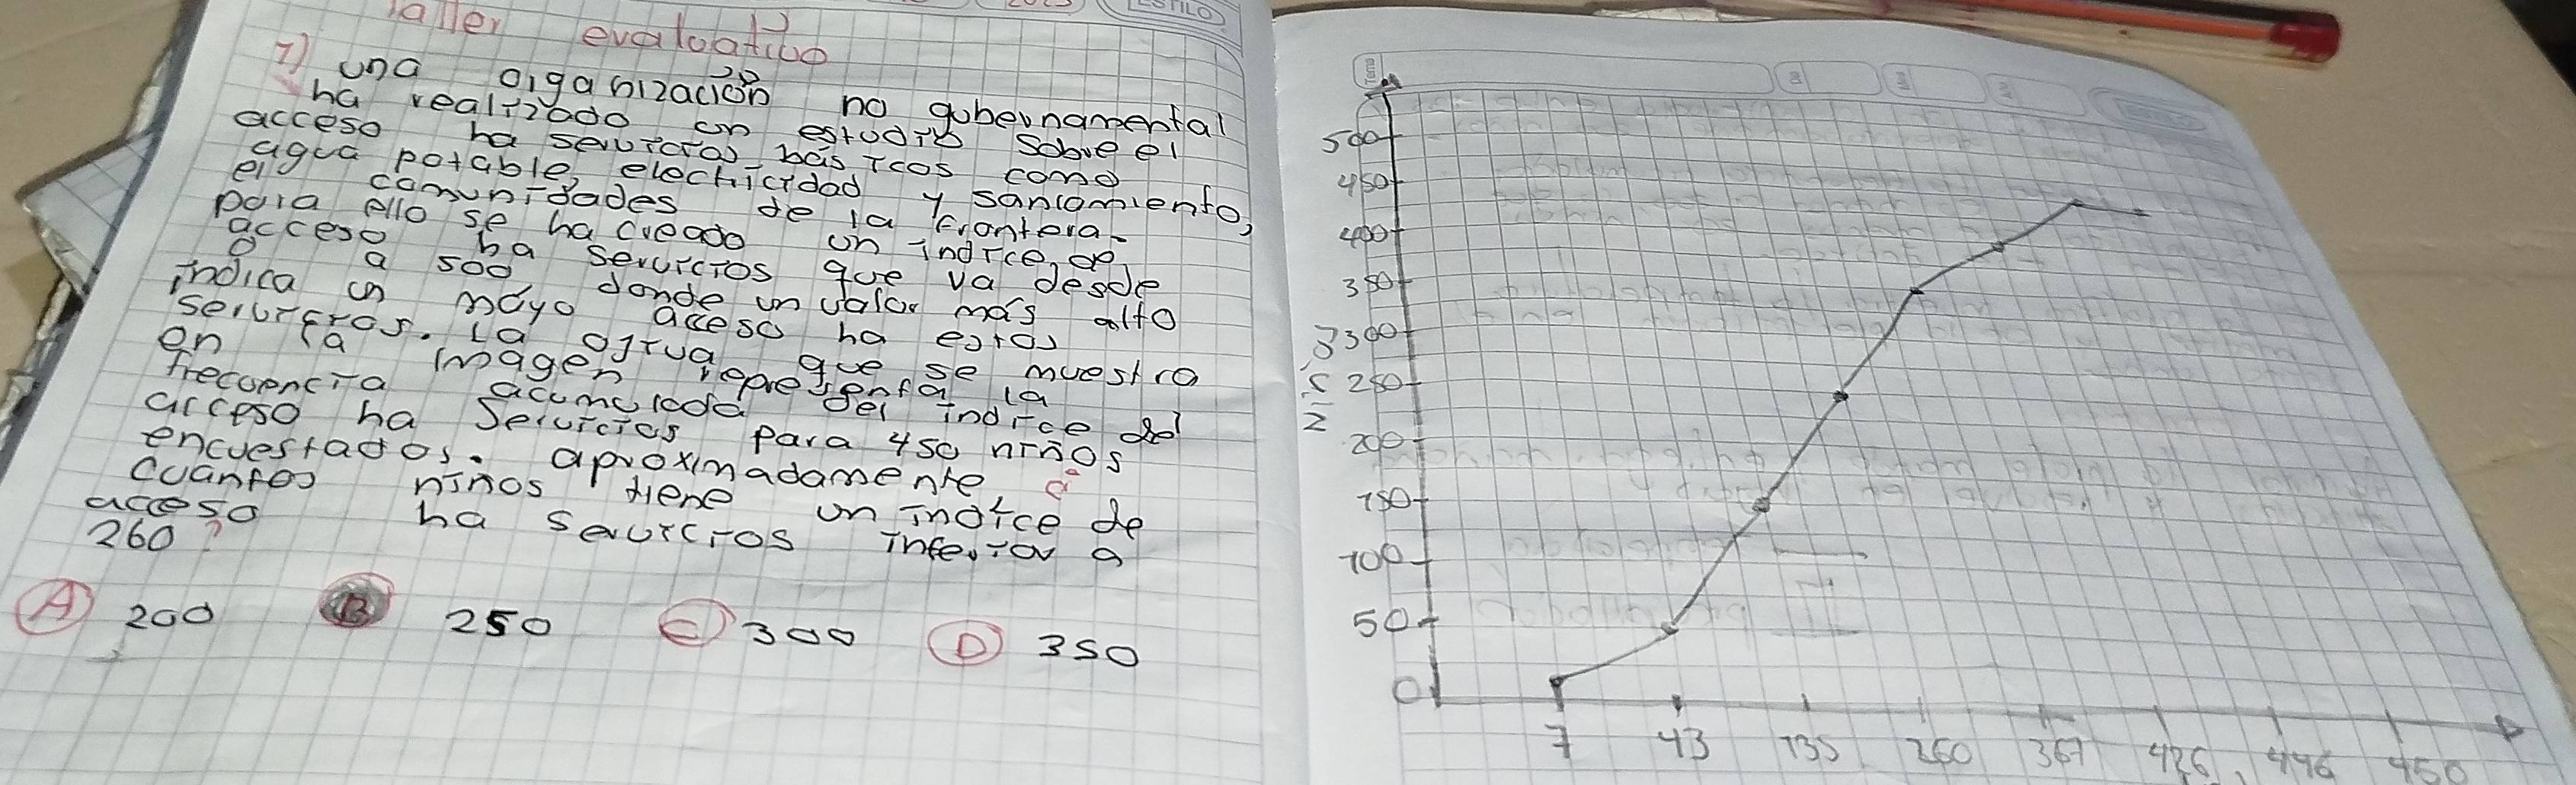 Taller evaluativo
1) una organización no gubernamental
ha realizado un estudio sobre el
acceso ha servicios básicos como
agua potable, electricidad y saniamiento,
el comunidades de la frontera.
para ello se ha creado un indice de
acceso ha servicios que va desde
0 a 500 donde un valor más alto
indica un mayo acceso ha estos
servicios. La ogiva que se muestra
en la imagen representa la
frecuencia acumulada del indice del
acceso ha servicios para 450 niños
encuestados. aproximadamente ¿
cuantos niños tiene un indice de
acceso ha servicios inferior a
260?
A 200 B 250 C 300 D 350
ESTILO
Tema
500
450
400
350
300
250
200
150
100
50
0
7 43 135 260 367 426 446 450